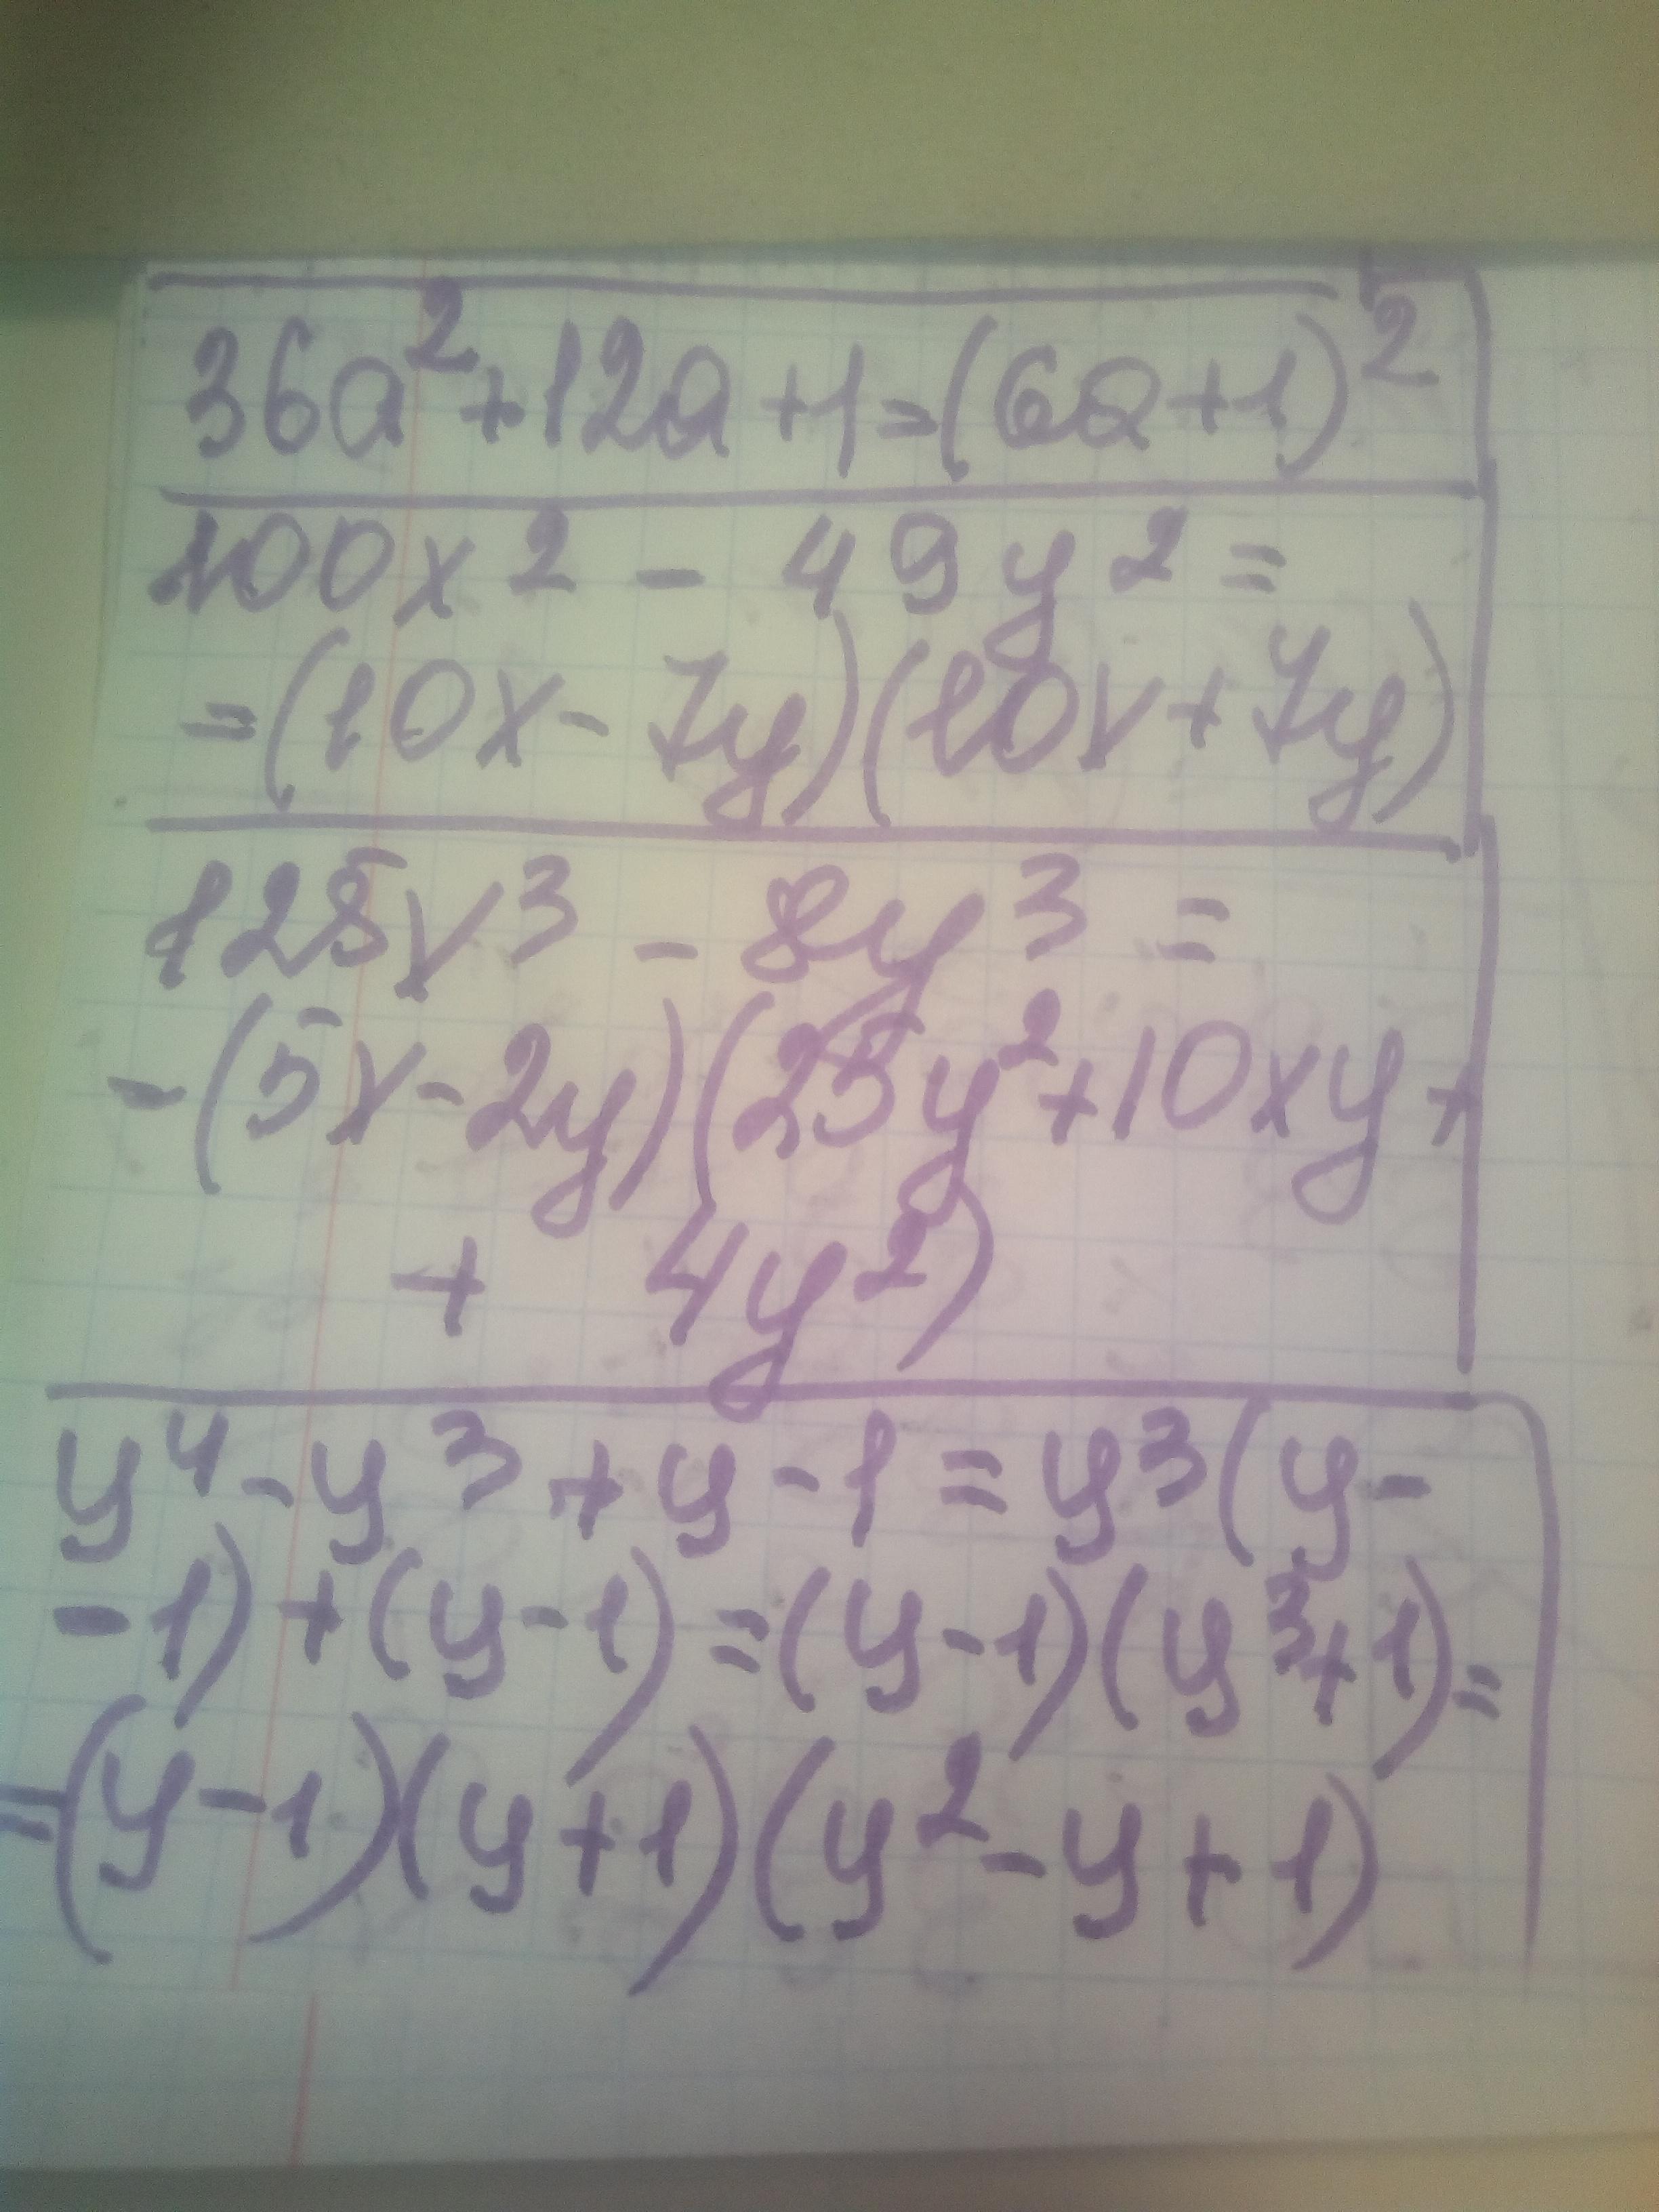 36a²+12a+1=(6a+1)²
100x² - 49y² =
=(10x-7y)(10x+7y)
125x³ - 8y³ =
-(5x-2y)(25y²+10xy+
+ 4y²)
y⁴-y³+y-1=y³(y-
-1)+(y-1)=(y-1)(y³+1)=
=(y-1)(y+1)(y²-y+1)